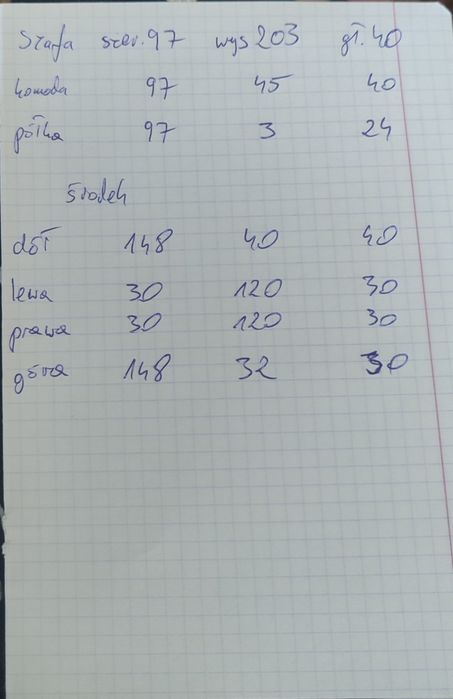 Szafa szer. 97 wys 203 gł. 40
komoda 97 45 40
półka 97 3 24
środek
dół 148 40 40
lewa 30 120 30
prawa 30 120 30
góra 148 32 30